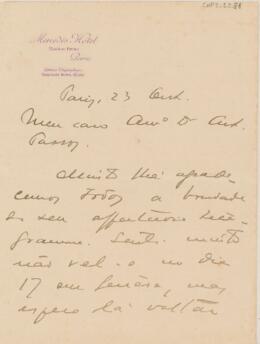 Mercedes Hotel
Paris
Paris, 23 Out.
Meu caro Am.º Dr Ant.
Passos
Muito lhe agrade-
cemos todos a bondade
do seu affectuoso tele-
gramma. Senti muito
não vel-o no dia
17 em Genève, mas
espero lá voltar